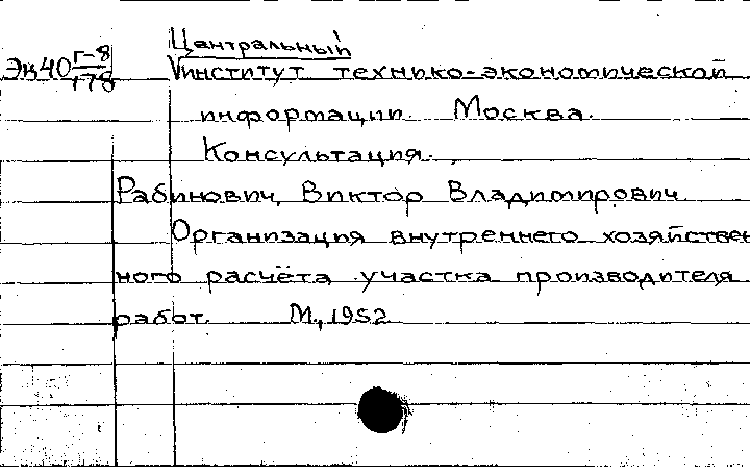 Центральный
Эк40 Г-8/178 Институт технико-экономической
информации. Москва.
Консультация.
Рабинович, Виктор Владимирович
Организация внутреннего хозяйствен
ного расчёта участка производителя
работ. М., 1952